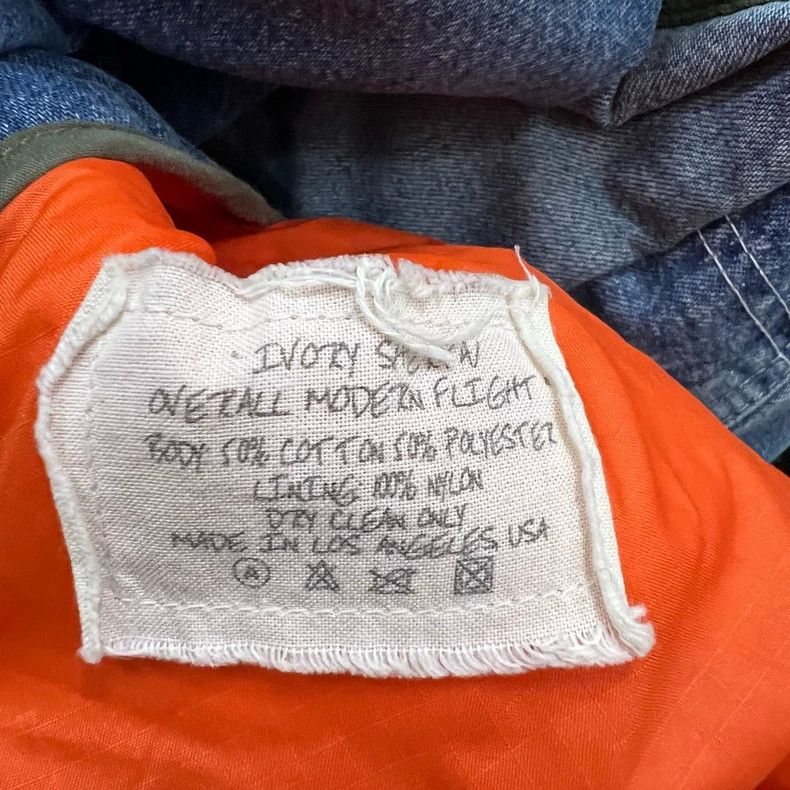 IVORY
OVERALL MODERN FLIGHT
BODY 50% COTTON 50% POLYESTER
LINING 100% NYLON
DRY CLEAN ONLY
MADE IN LOS ANGELES USA
A